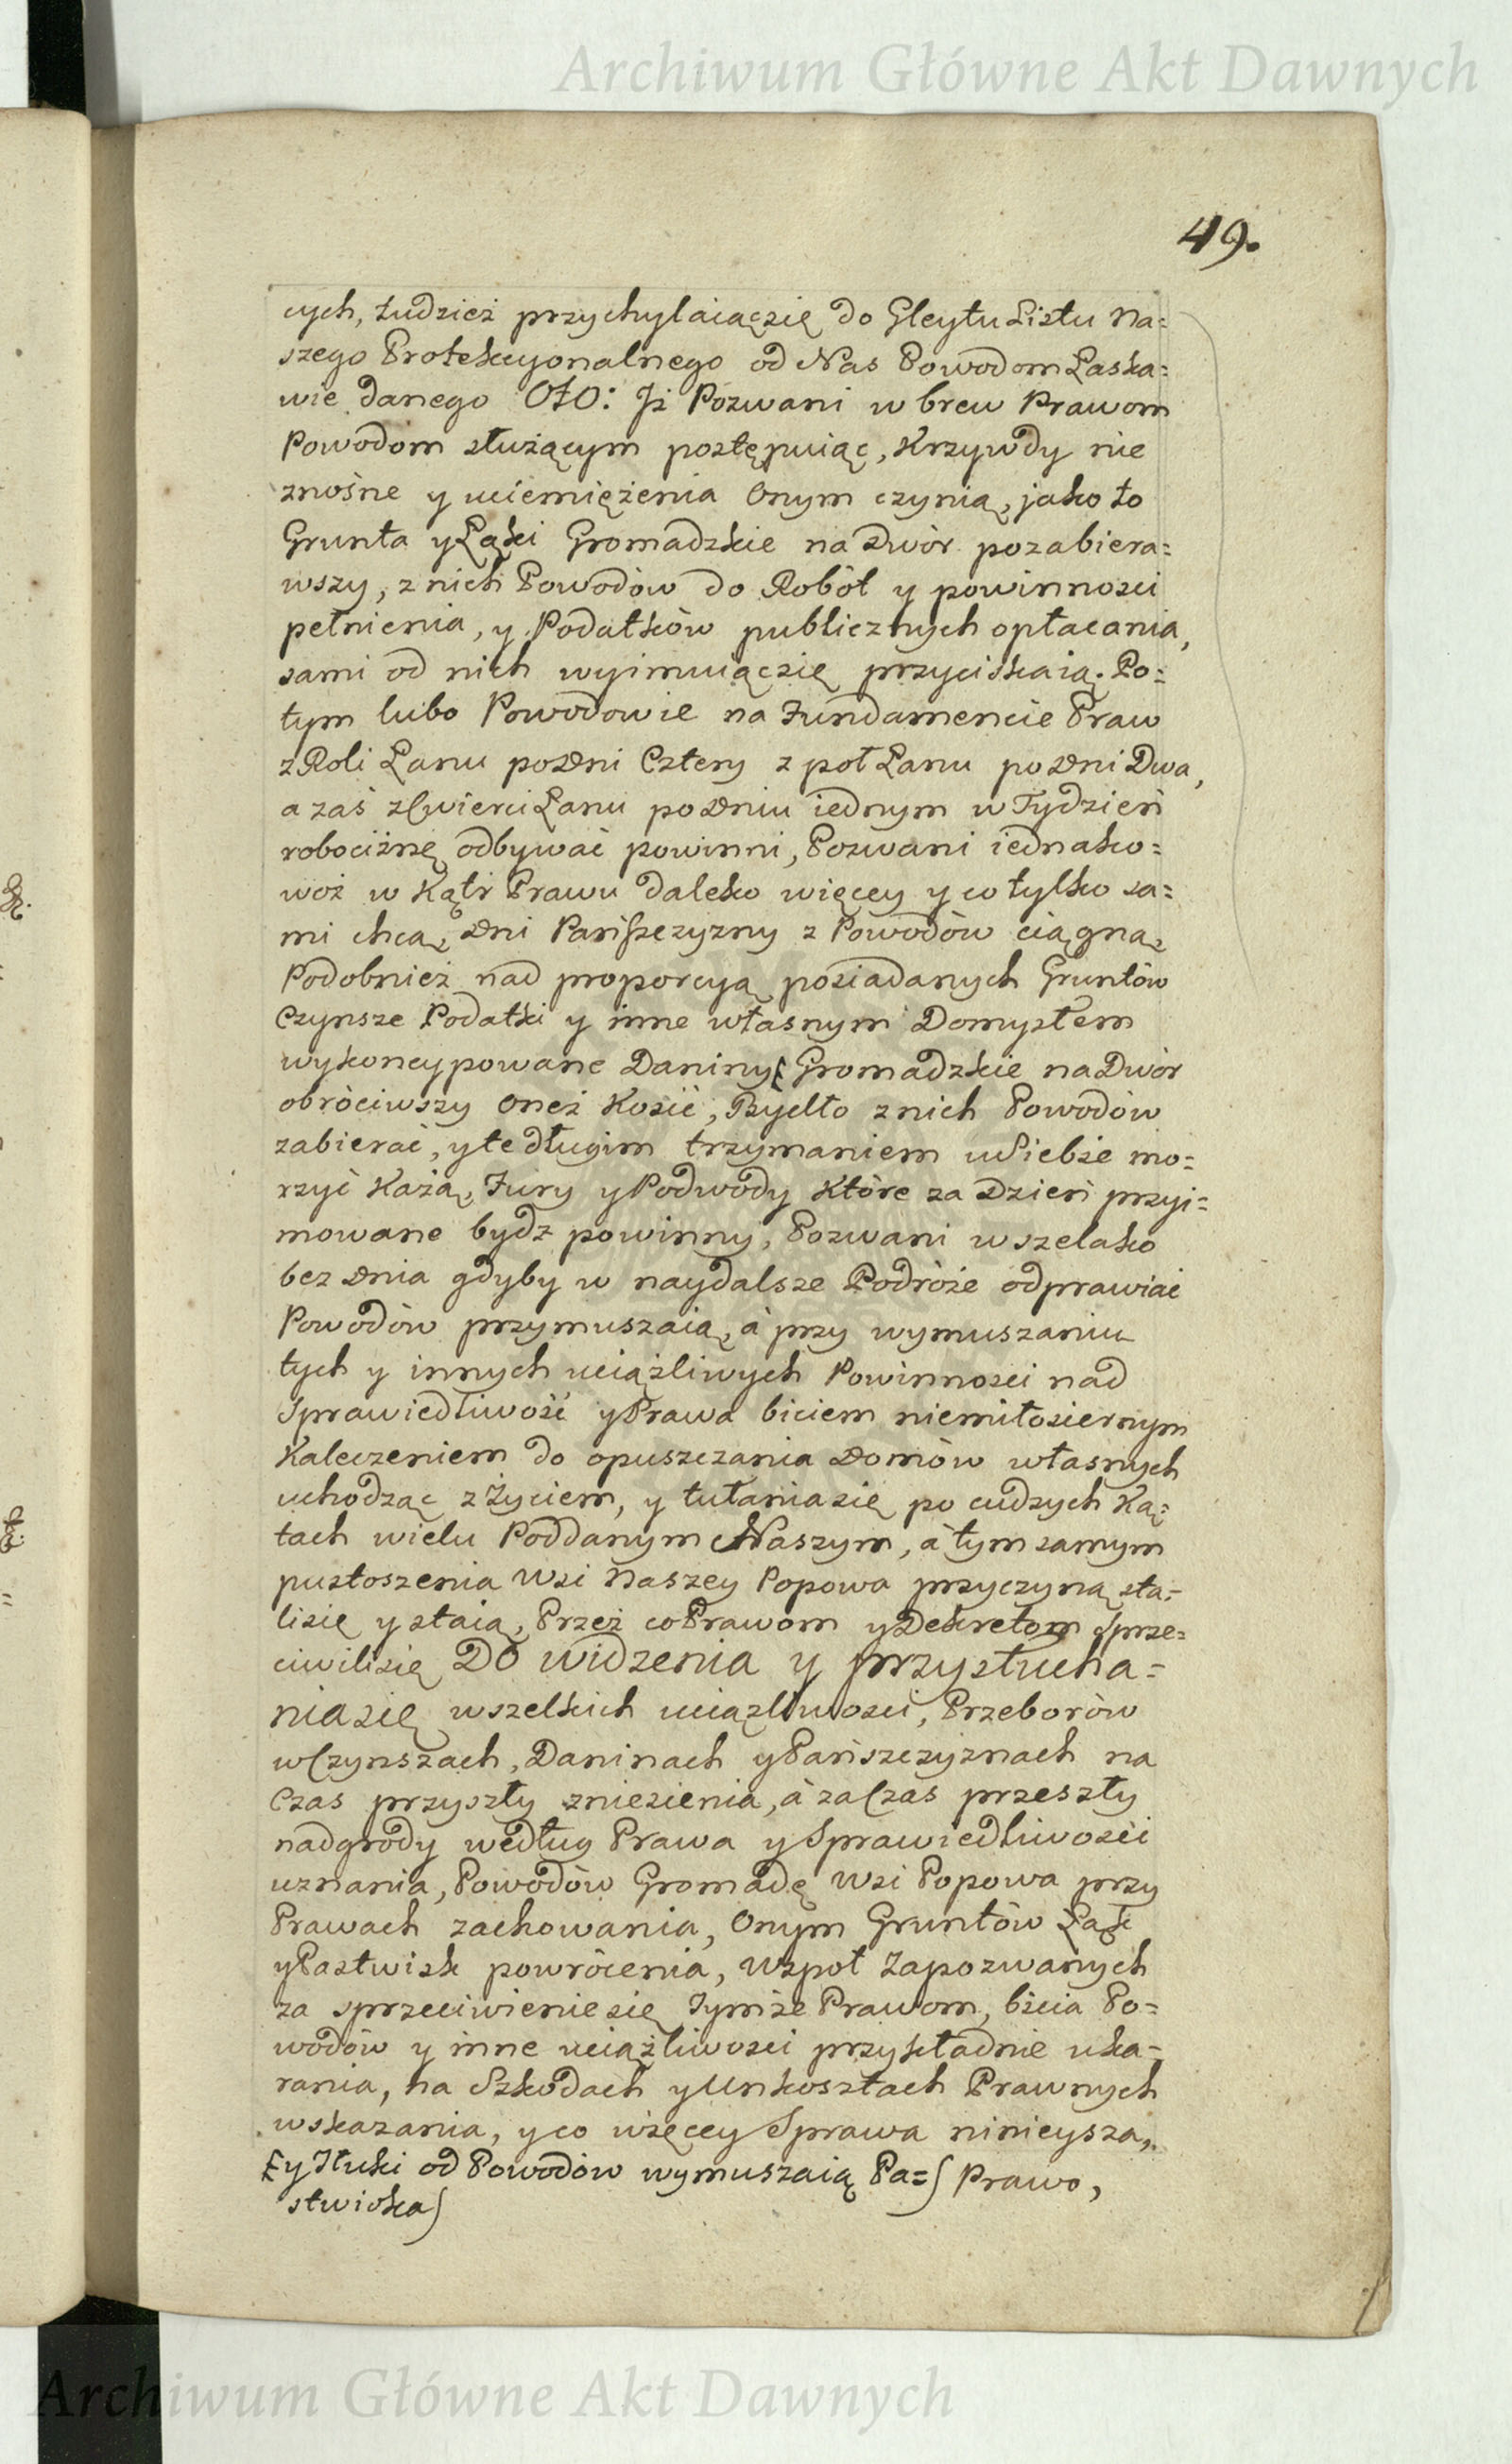 Archiwum Główne Akt Dawnych
49.
cych, tudzież przychylaiącsię do Gleytu Listu Na=
szego Protekcyonalnego od Nas Powodom Łaska=
wie danego OTO: Jż Pozwani wbrew Prawom
Powodom służącym postępuiąc, Krzywdy nie
znośne y uciemiężenia Onym czynią, jako to
Grunta y Łąki Gromadzkie na Dwór pozabiera=
wszy, z nich Powodów do Robót y powinności
pełnienia, y Podatków publicznych opłacania,
sami od nich wyimuiącsię przyciskaią. Po=
tym lubo Powodowie na Fundamencie Praw
z Roli Łanu po Dni Cztery z poł Łanu po Dni Dwa,
a zaś z Cwierci Łanu po Dniu iednym w Tydzień
robociznę odbywać powinni, Pozwani iednako=
woż w Kątr Prawu daleko więcey y co tylko sa=
mi chcą, Dni Pańszczyzny z Powodów ciągną,
Podobnież nad proporcyą posiadanych Gruntów
Czynsze Podatki y inne własnym Domysłem
wykoncypowane Daniny Gromadzkie na Dwór
obróciwszy oneż Kosić, Bydło z nich Powodów
zabierać, y te długim trzymaniem u Siebie mo=
rzyć Każą, Fury y Podwody Które za Dzień przyi=
mowane bydz powinny, Pozwani wszelako
bez Dnia gdyby w naydalsze Podróże odprawiać
Powodów przymuszaią, à przy wymuszaniu
tych y innych uciążliwych Powinności nad
Sprawiedliwość y Prawa biciem niemiłosiernym
Kaleczeniem do opuszczania Domów własnych
uchodząc z Życiem, y tułaniasię po cudzych Ką=
tach wielu Poddanym Naszym, à tym samym
pustoszenia Wsi Naszey Popowa przyczyną sta=
lisię y staią, Przeż co Prawom y Dekretom Sprze=
ciwilisię DO widzenia y przysłucha=
niasię wszelkich uciążliwości, Przeborów
w Czynszach, Daninach y Pańszczyznach na
Czas przyszły zniesienia, à za Czas przeszły
nadgrody według Prawa y Sprawiedliwości
uznania, Powodów Gromadę Wsi Popowa przy
Prawach zachowania, Onym Gruntów Łąk
y Pastwisk powrócenia, Wspoł Zapozwanych
za sprzeciwieniesię Tymże Prawom, bicia Po=
wodów y inne uciążliwości przykładnie uka=
rania, na Szkodach y Unkosztach Prawnych
wskazania, y co więcey Sprawa ninieysza,
y Tłuki od Powodów wymuszaią Pa= Prawo,
stwiska
Archiwum Główne Akt Dawnych